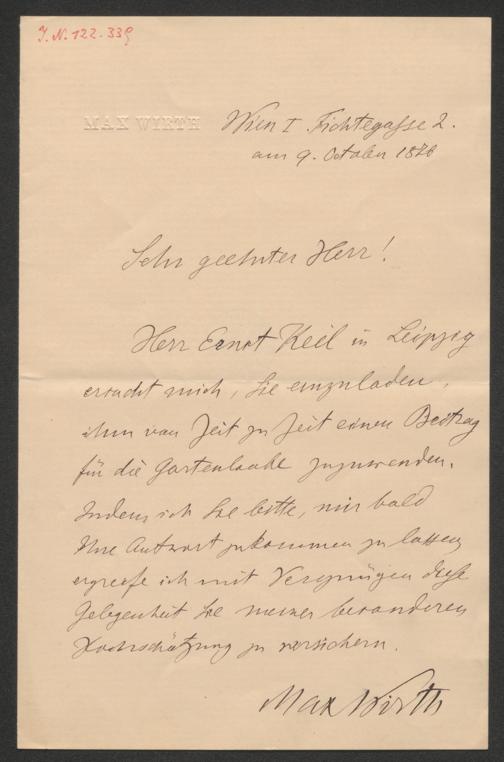 I.N. 122.339
MAX WIRTH
Wien I. Fichtegasse 2.
am 9. October 1876
Sehr geehrter Herr!
Herr Ernst Keil in Leipzig
ersucht mich, Sie einzuladen,
ihm von Zeit zu Zeit einen Beitrag
für die Gartenlaube zuzuwenden.
Indem ich Sie bitte, mir bald
Ihre Antwort zukommen zu lassen
ergreife ich mit Vergnügen diese
Gelegenheit Sie meiner besonderen
Hochschätzung zu versichern.
Max Wirth